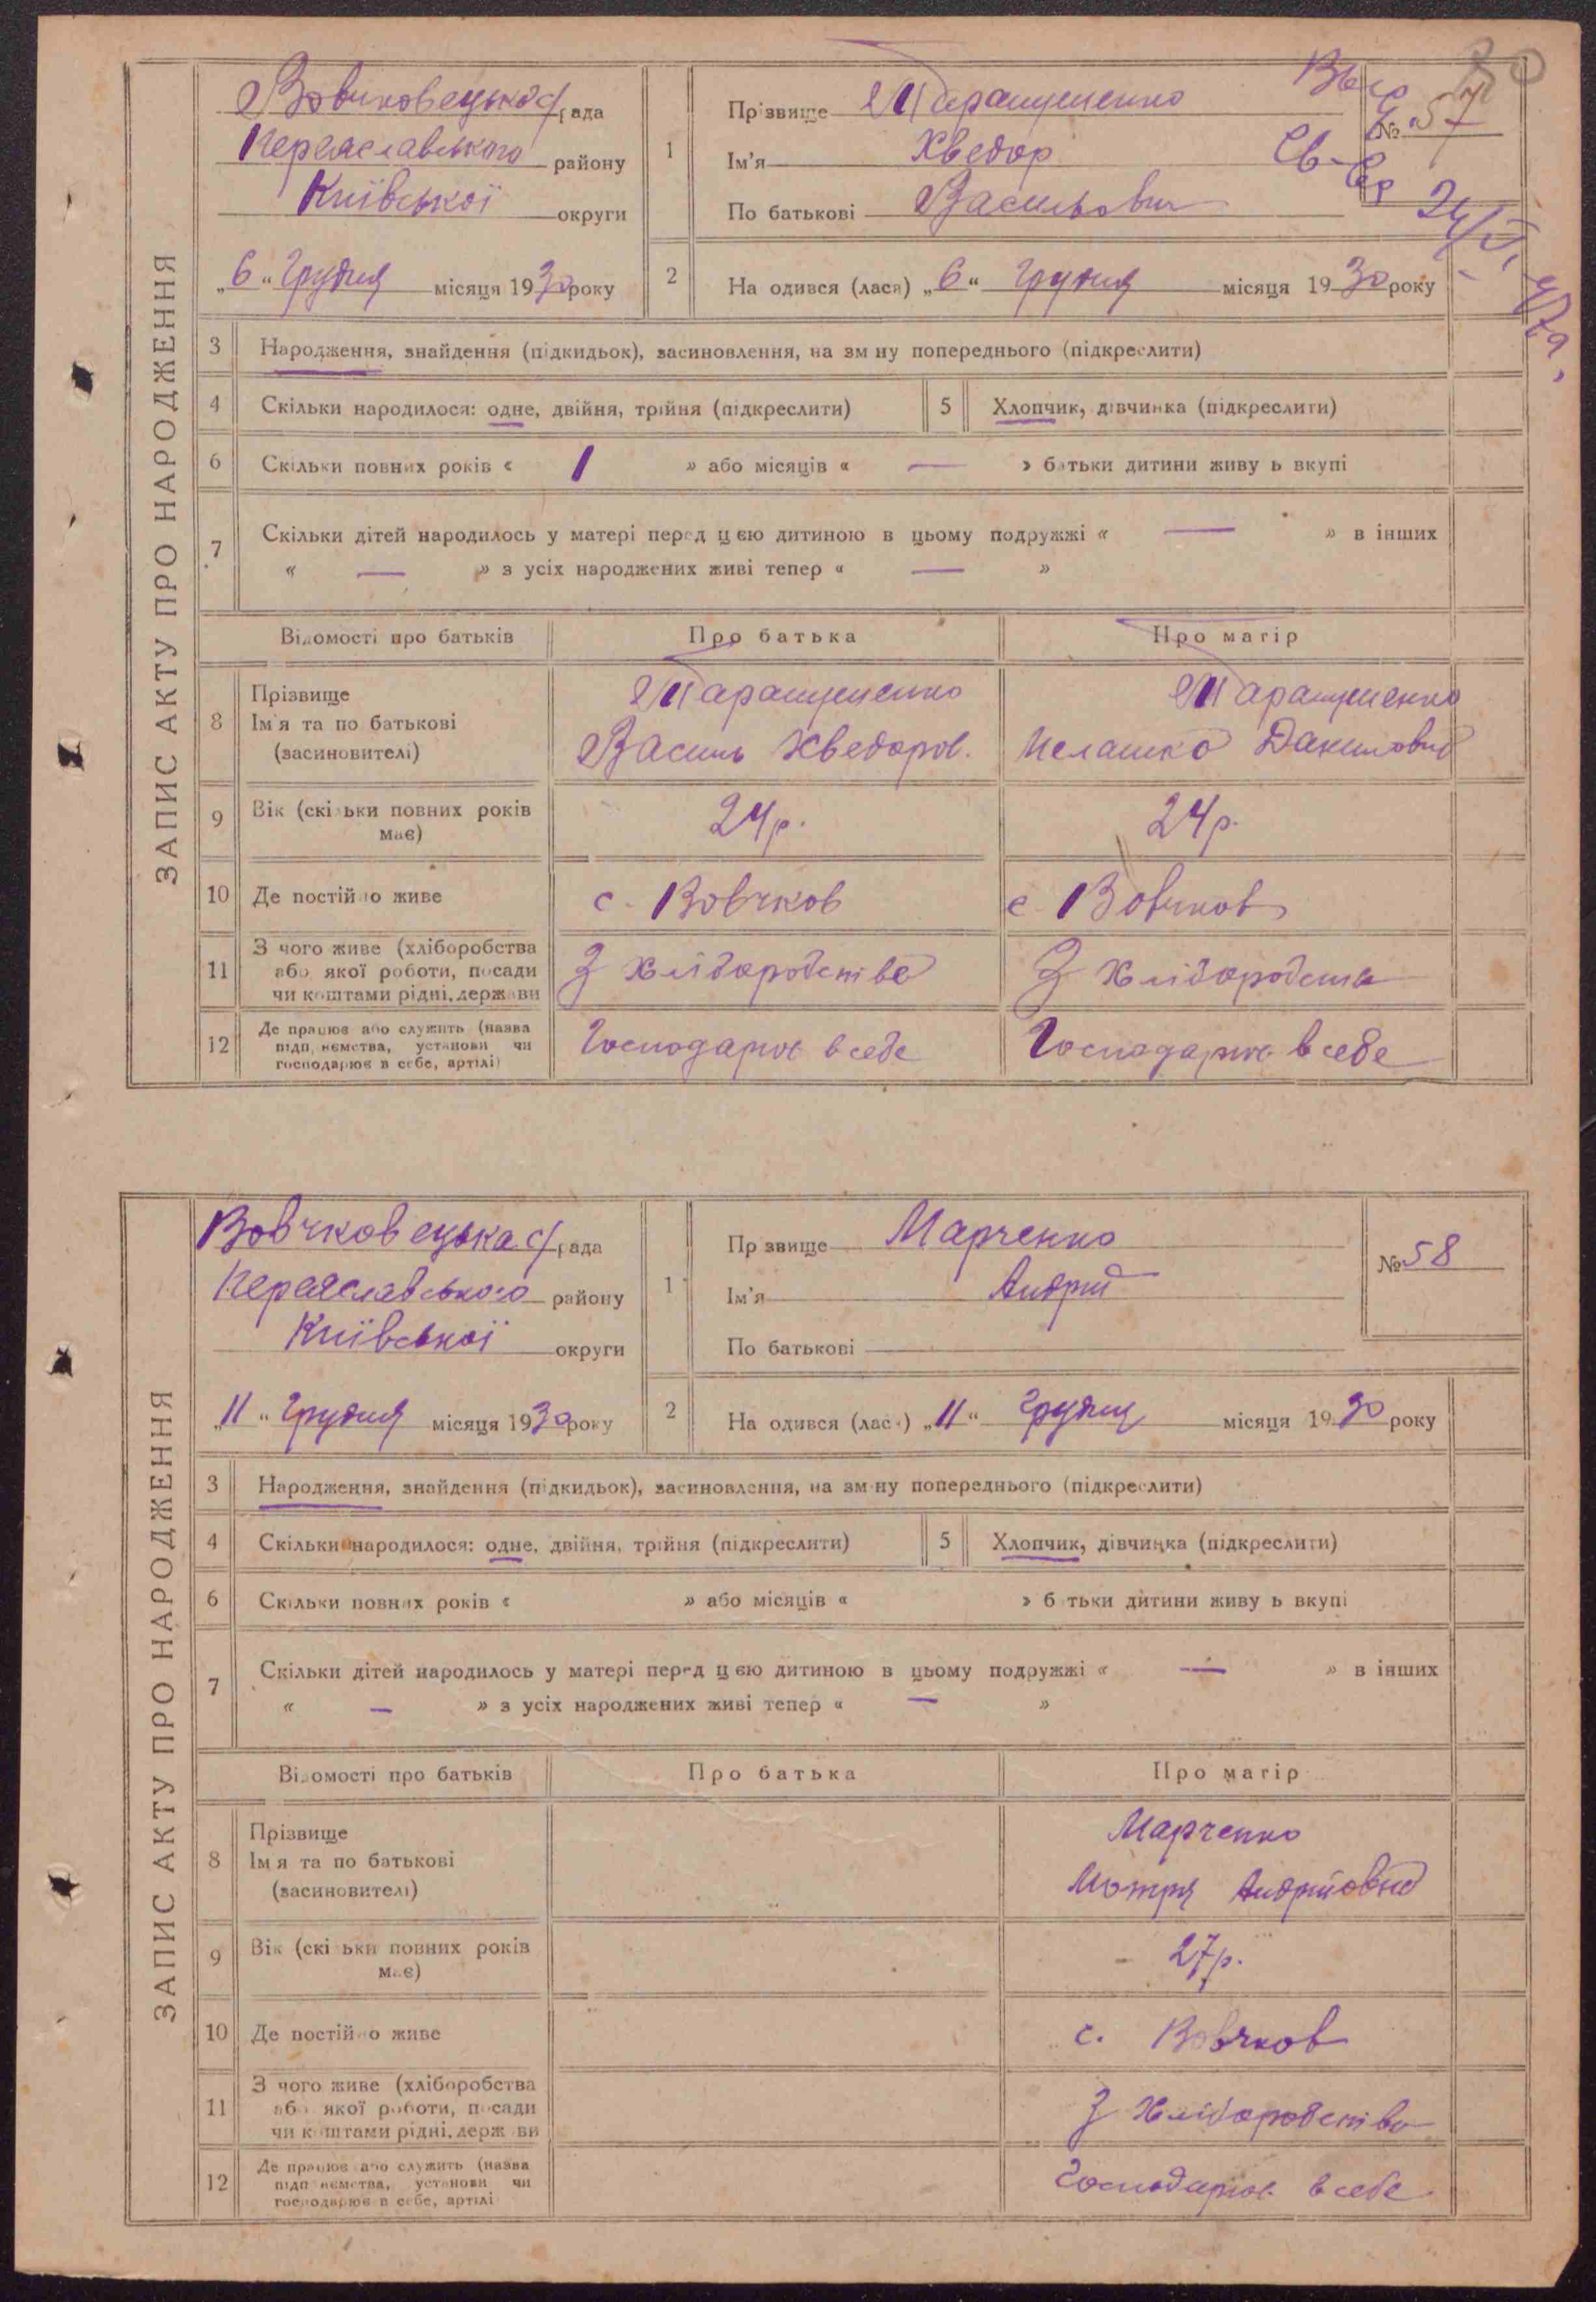 ЗАПИС АКТУ ПРО НАРОДЖЕННЯ
Вовчковецька с/рада
Переяславського району
Київської округи
„6“ Грудня місяця 1930 року
1
Прізвище Таращенко
Ім'я Хведор
По батькові Васильович
№ 57
2
На одився (лася) „6“ Грудня місяця 1930 року
3 Народження, знайдення (підкидьок), засиновлення, на зм ну попереднього (підкреслити)
4 Скільки народилося: одне, двійня, трійня (підкреслити) 5 Хлопчик, дівчинка (підкреслити)
6 Скільки повних років « 1 » або місяців « — » батьки дитини живу ь вкупі
7 Скільки дітей народилось у матері перед цею дитиною в цьому подружжі « — » в інших
« — » з усіх народжених живі тепер « — »
Відомості про батьків Про батька Про матір
8 Прізвище
Ім'я та по батькові
(засиновителі)
Василь Хведоров.
Мелашка Даниловна
9 Вік (скі ьки повних років має) 24 р. 24 р.
10 Де постійно живе с. Вовчков с. Вовчков
11 З чого живе (хліборобства
або якої роботи, посади
чи коштами рідні, держави
З хліборобства З хліборобства
12 Де працює або служить (назва
підп иємства, установи чи
господарює в себе, артілі)
Господарює в себе Господарює в себе
ЗАПИС АКТУ ПРО НАРОДЖЕННЯ
Вовчковецька с/рада
Переяславського району
Київської округи
„11“ Грудня місяця 1930 року
1
Пр звище Марченко
Ім'я Андрій
По батькові
№ 58
2
На одився (лас ) „11“ Грудня місяця 1930 року
3 Народження, знайдення (підкидьок), засиновлення, на зм ну попереднього (підкреслити)
4 Скільки народилося: одне, двійня, трійня (підкреслити) 5 Хлопчик, дівчинка (підкреслити)
6 Скільки повних років « » або місяців « » б тьки дитини живу ь вкупі
7 Скільки дітей народилось у матері перед цею дитиною в цьому подружжі « — » в інших
« — » з усіх народжених живі тепер « — »
Відомості про батьків Про батька Про матір
8 Прізвище
Ім'я та по батькові
(засиновителі)
Марченко
Мотря Андрійовна
9 Вік (скі ьки повних років має) 27 р.
10 Де постійно живе с. Вовчков
11 З чого живе (хліборобства
або якої роботи, посади
чи коштами рідні, держ ви
З хліборобства
12 Де працює або служить (назва
підп иємства, установи чи
господарює в себе, артілі
Господарює в себе